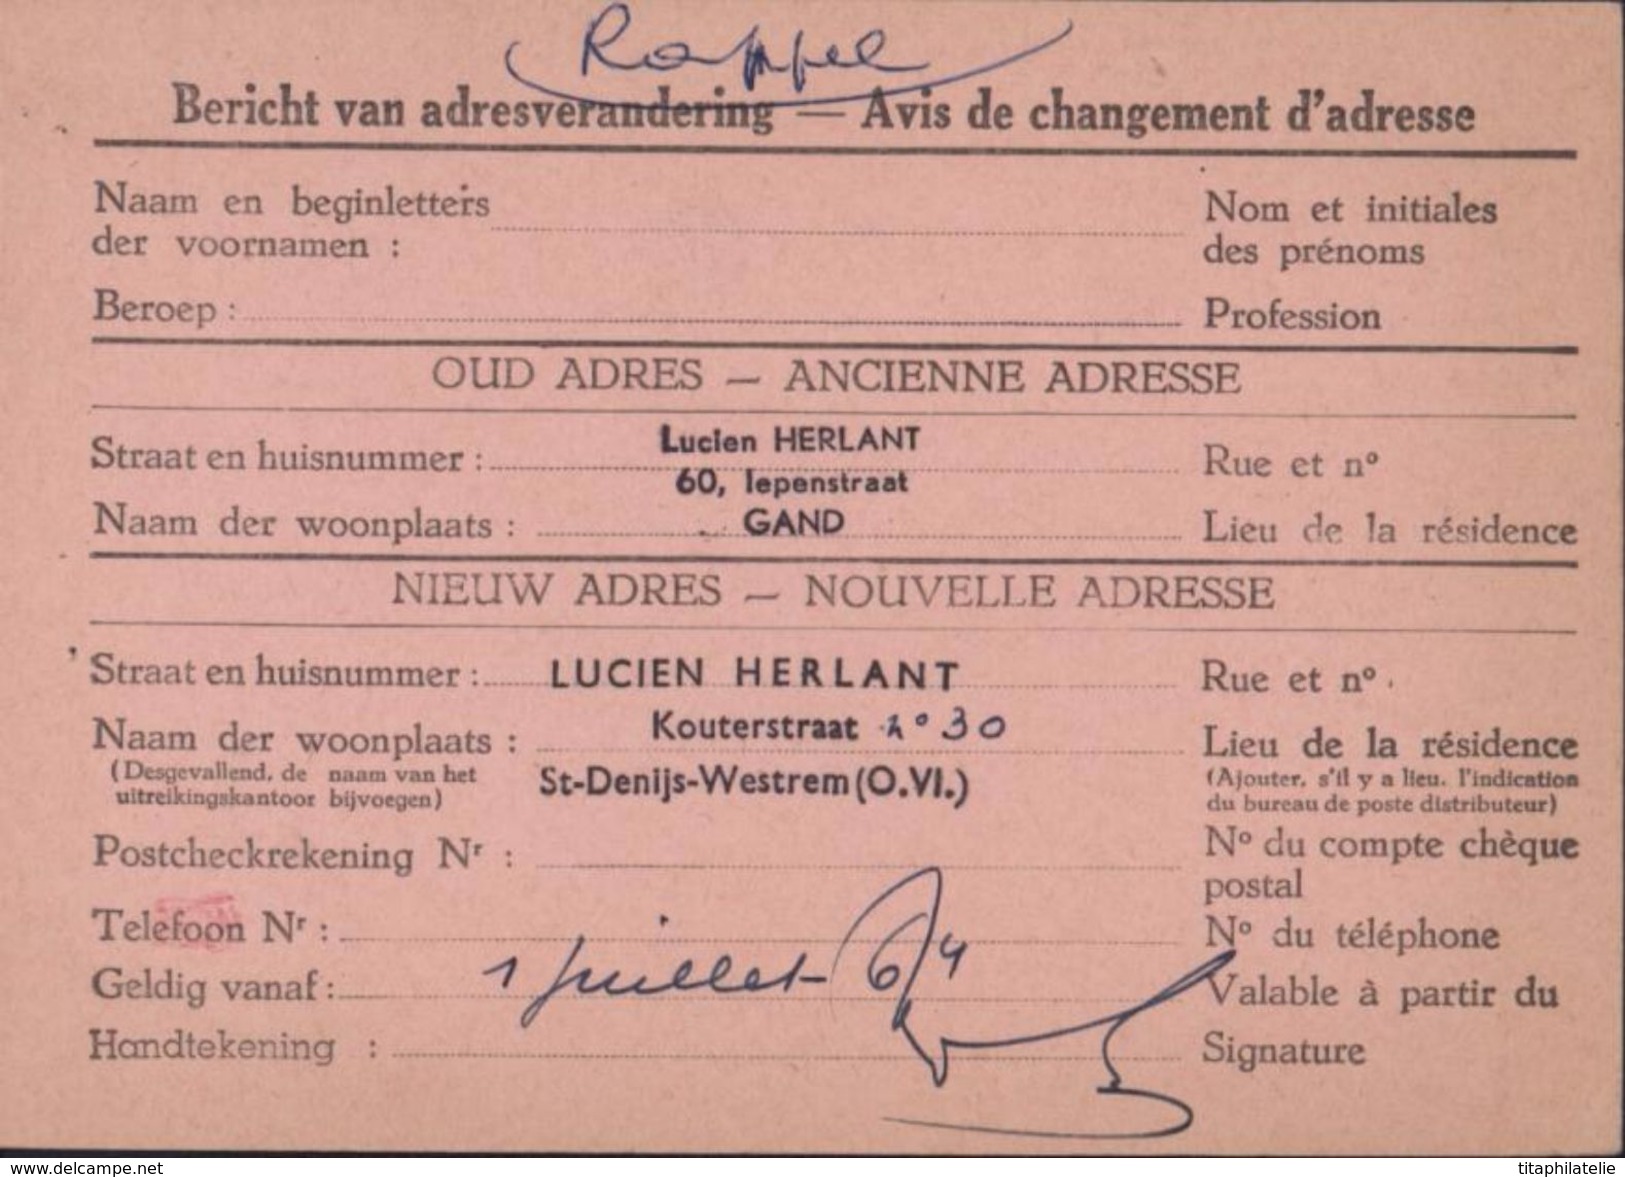 Rappel
Bericht van adresverandering — Avis de changement d'adresse
Naam en beginletters der voornamen : Nom et initiales des prénoms
Beroep : Profession
OUD ADRES — ANCIENNE ADRESSE
Lucien HERLANT
Straat en huisnummer : Rue et nº
60, Iepenstraat
Naam der woonplaats : GAND Lieu de la résidence
NIEUW ADRES — NOUVELLE ADRESSE
Straat en huisnummer : LUCIEN HERLANT Rue et nº
Kouterstraat nº 30
Naam der woonplaats : Lieu de la résidence
(Desgevallend, de naam van het (Ajouter, s'il y a lieu, l'indication
St-Denijs-Westrem (O.Vl.)
uitreikingskantoor bijvoegen) du bureau de poste distributeur)
Postcheckrekening Nr : Nº du compte chèque postal
Telefoon Nr : Nº du téléphone
Geldig vanaf : 1 juillet 64 Valable à partir du
Handtekening : Signature
www.delcampe.net titaphilatelie